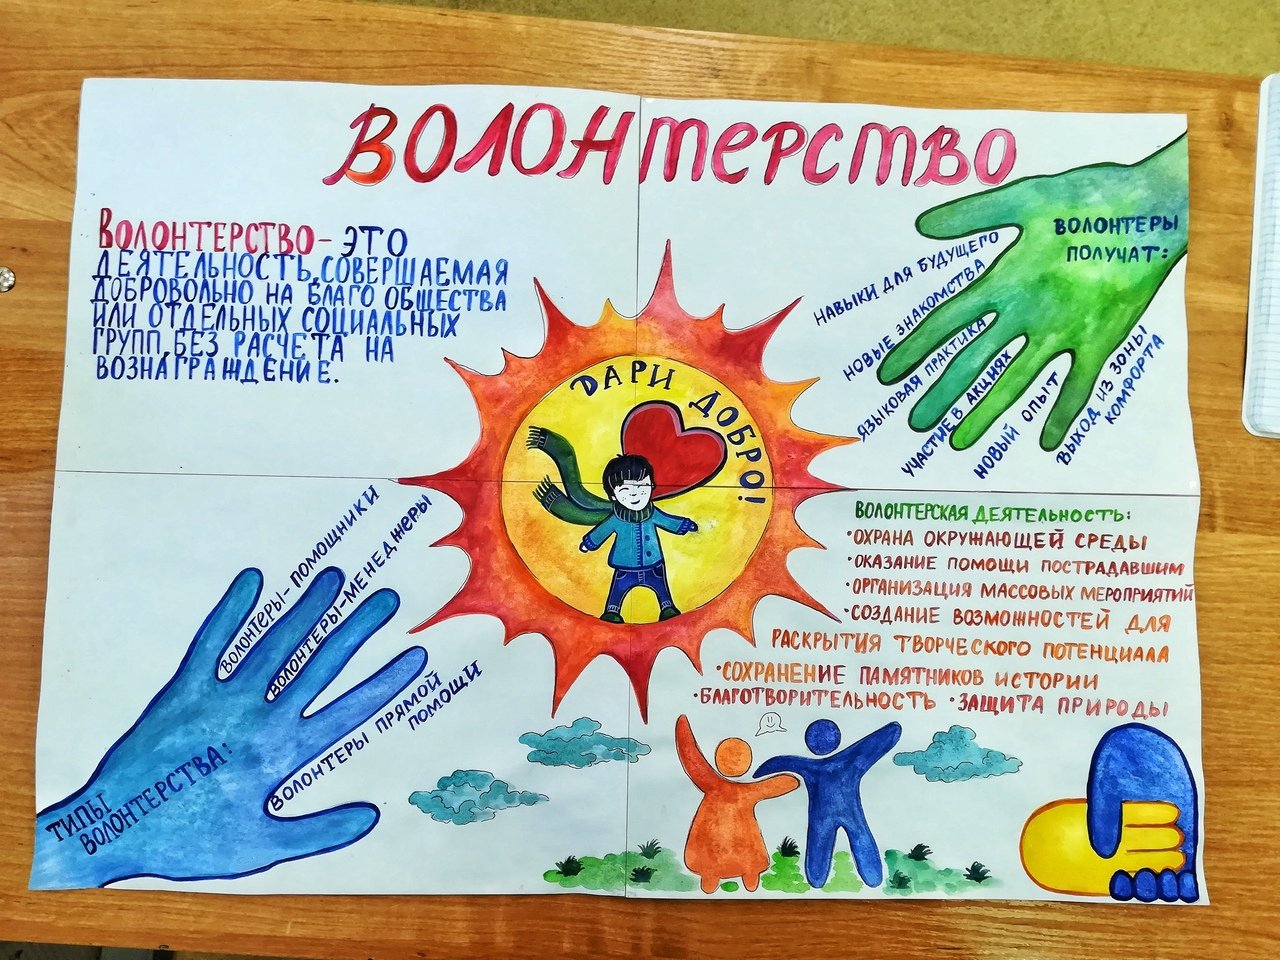 ВОЛОНтерство
ВОЛОНТЕРСТВО- ЭТО
ДЕЯТЕЛЬНОСТЬ, СОВЕРШАЕМАЯ
ДОБРОВОЛЬНО НА БЛАГО ОБЩЕСТВА
ИЛИ ОТДЕЛЬНЫХ СОЦИАЛЬНЫХ
ГРУПП, БЕЗ РАСЧЕТА НА
ВОЗНАГРАЖДЕНИЕ.
ВОЛОНТЕРЫ
ПОЛУЧАТ:
НАВЫКИ ДЛЯ БУДУЩЕГО
НОВЫЕ ЗНАКОМСТВА
ЯЗЫКОВАЯ ПРАКТИКА
УЧАСТИЕ В АКЦИЯХ
НОВЫЙ ОПЫТ
ВЫХОД ИЗ ЗОНЫ
КОМФОРТА
ДАРИ ДОБРО!
ТИПЫ
ВОЛОНТЕРСТВА:
ВОЛОНТЕРЫ-ПОМОЩНИКИ
ВОЛОНТЕРЫ-МЕНЕДЖЕРЫ
ВОЛОНТЕРЫ ПРЯМОЙ
ПОМОЩИ
ВОЛОНТЕРСКАЯ ДЕЯТЕЛЬНОСТЬ:
·ОХРАНА ОКРУЖАЮЩЕЙ СРЕДЫ
·ОКАЗАНИЕ ПОМОЩИ ПОСТРАДАВШИМ
·ОРГАНИЗАЦИЯ МАССОВЫХ МЕРОПРИЯТИЙ
·СОЗДАНИЕ ВОЗМОЖНОСТЕЙ ДЛЯ
РАСКРЫТИЯ ТВОРЧЕСКОГО ПОТЕНЦИАЛА
·СОХРАНЕНИЕ ПАМЯТНИКОВ ИСТОРИИ
·БЛАГОТВОРИТЕЛЬНОСТЬ ·ЗАЩИТА ПРИРОДЫ